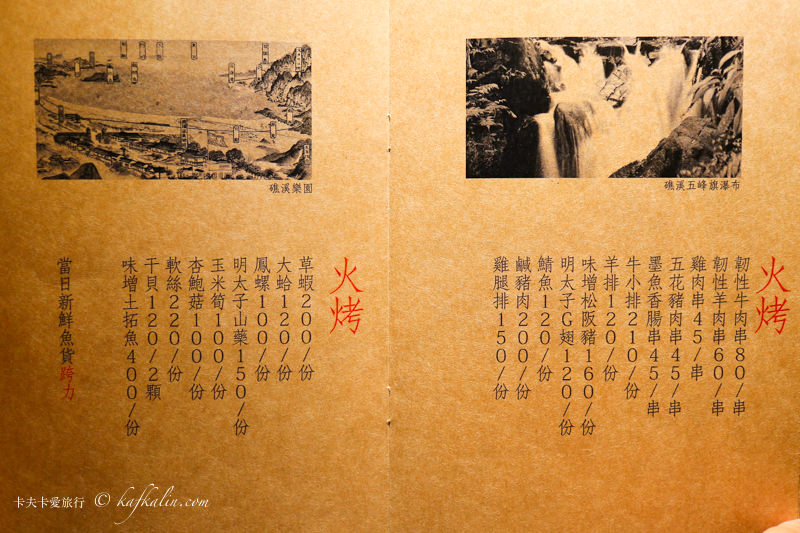 礁溪五峰旗瀑布
火烤
韌性牛肉串80/串
韌性羊肉串60/串
雞肉串45/串
五花豬肉串45/串
墨魚香腸串45/串
牛小排210/份
羊排120/份
味增松阪豬160/份
明太子G翅120/份
鯖魚120/份
鹹豬肉200/份
雞腿排150/份
礁溪樂園
火烤
草蝦200/份
大蛤120/份
鳳螺100/份
明太子山藥150/份
玉米筍100/份
杏鮑菇100/份
軟絲220/份
干貝120/2顆
味增土拓魚400/份
當日新鮮魚貨跨力
卡夫卡愛旅行 © kafkalin.com